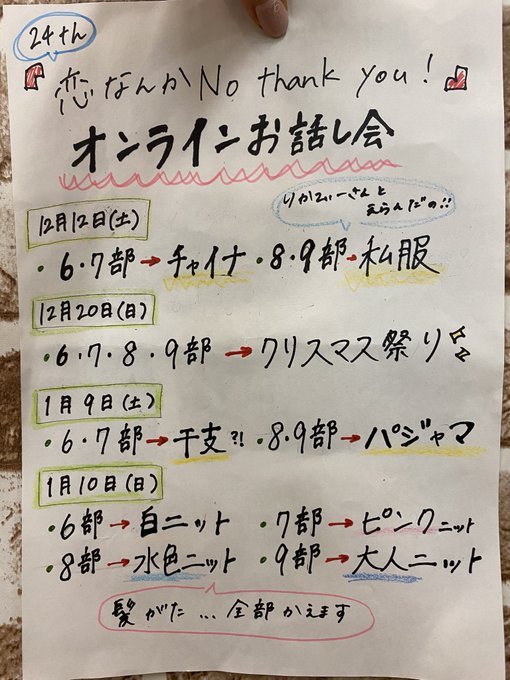 24th
恋なんかNo thank you!
オンラインお話し会
12月12日(土)
りかてぃーさんと
えらんだの!!
・6・7部→チャイナ ・8・9部→私服
12月20日(日)
・6・7・8・9部→クリスマス祭り
1月9日(土)
・6・7部→干支?! ・8.9部→パジャマ
1月10日(日)
・6部→白ニット ・7部→ピンクニット
・8部→水色ニット ・9部→大人ニット
髪がた...全部かえます